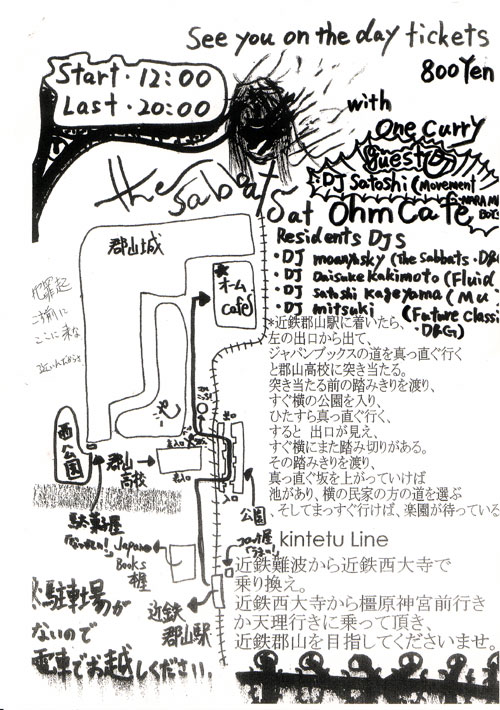 See you on the day tickets
800 Yen
Start・12:00
Last・20:00
with
One Curry
Guest
DJ Satoshi (Movement
the Sabbat
Sat Ohm Cafe
Residents DJs
・DJ moanyusky (The Sabbats・D&G
・DJ Daisuke Kakimoto (Fluid
・DJ Satoshi Kageyama (Mu
・DJ mitsuki (Future Classi
・D&G)
郡山城
★
オーム
Cafe
ここに来な
西公園
郡山
高校
駄菓子屋
Japan
Books
本屋
近鉄
郡山駅
公園
*近鉄郡山駅に着いたら、
左の出口から出て、
ジャパンブックスの道を真っ直ぐ行く
と郡山高校に突き当たる。
突き当たる前の踏みきりを渡り、
すぐ横の公園を入り、
ひたすら真っ直ぐ行く、
すると 出口が見え、
すぐ横にまた踏み切りがある。
その踏みきりを渡り、
真っ直ぐ坂を上がっていけば
池があり、横の民家の方の道を選ぶ
、そしてまっすぐ行けば、楽園が待っている
kintetu Line
近鉄難波から近鉄西大寺で
乗り換え。
近鉄西大寺から橿原神宮前行き
か天理行きに乗って頂き、
近鉄郡山を目指してくださいませ。
駐車場が
ないので
電車でお越しください。